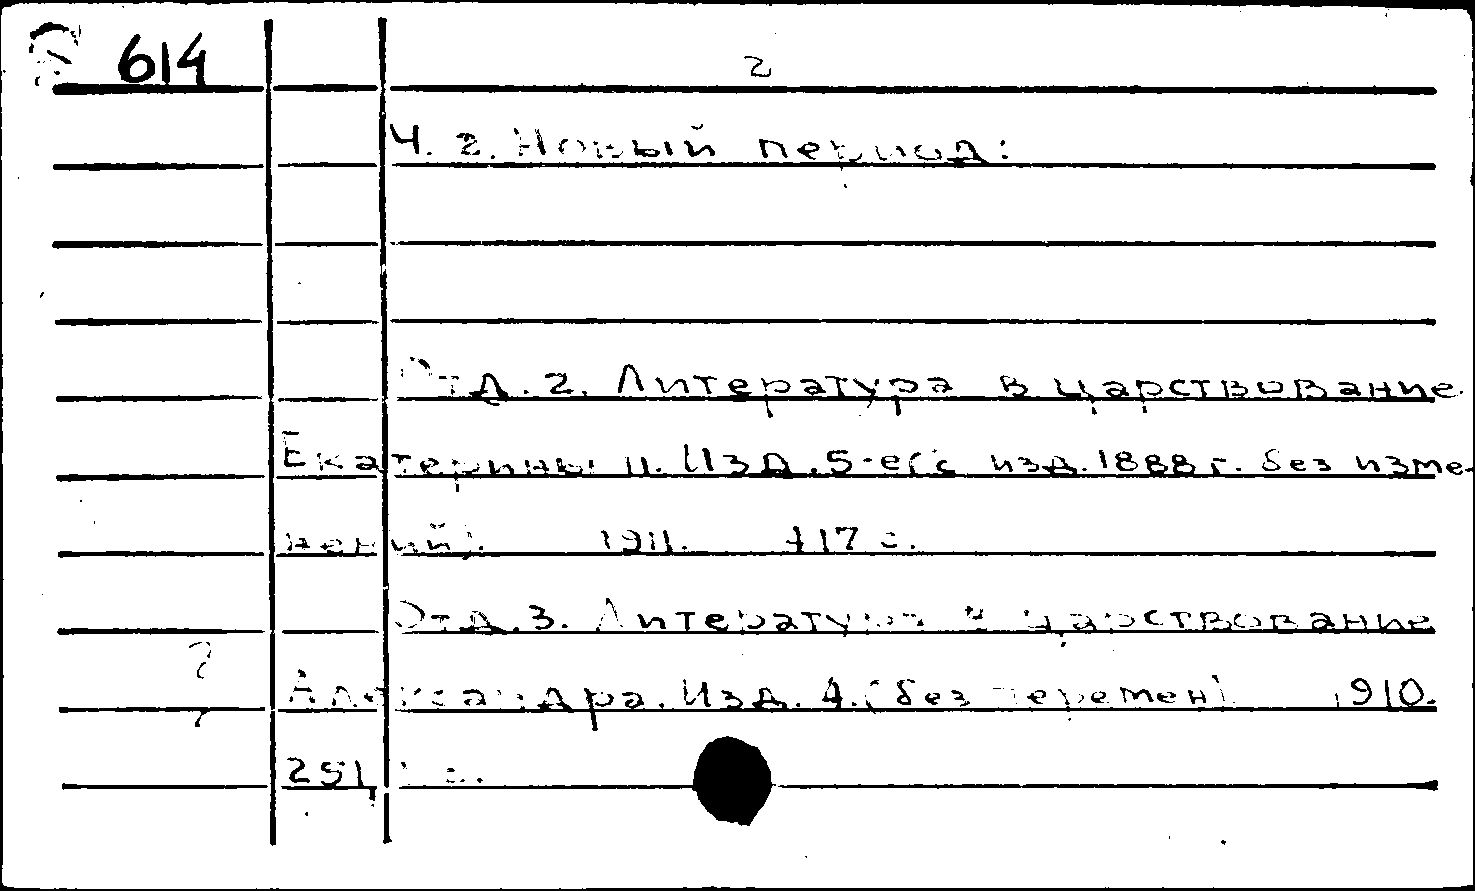 614
2
Ч. 2. Новый период:
Отд. 2. Литература в царствование
Екатерины II. Изд. 5-е (с изд. 1888 г. без изме-
нений). 1911. 417 с.
Отд. 3. Литература в царствование
Александра. Изд. 4. (без перемен) 1910.
251, с.